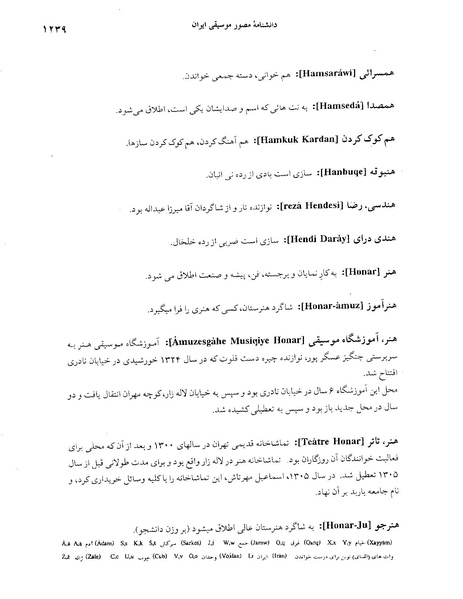 دانشنامهٔ مصور موسیقی ایران
۱۲۳۹
همسرائی [Hamsaráwi]: هم خوانی، دسته جمعی خواندن.
همصدا [Hamsedá]: به نت هائی که اسم و صدایشان یکی است، اطلاق می‌شود.
هم کوک کردن [Hamkuk Kardan]: هم آهنگ کردن، هم کوک کردن سازها.
هنبوقه [Hanbuqe]: سازی است بادی از رده نی انبان.
هندسی، رضا [rezá Hendesi]: نوازنده تار و از شاگردان آقا میرزا عبداله بود.
هندی درای [Hendi Daráy]: سازی است ضربی از رده خلخال.
هنر [Honar]: به کار نمایان و برجسته، فن، پیشه و صنعت اطلاق می شود.
هنرآموز [Honar-ámuz]: شاگرد هنرستان، کسی که هنری را فرا میگیرد.
هنر، آموزشگاه موسیقی [Ámuzesgáhe Musiqiye Honar]: آموزشگاه موسیقی هنر به
سرپرستی چنگیز عسگر پور، نوازنده چیره دست فلوت که در سال ۱۳۲۴ خورشیدی در خیابان نادری
افتتاح شد.
محل این آموزشگاه ۶ سال در خیابان نادری بود و سپس به خیابان لاله زار، کوچه مهران انتقال یافت و دو
سال در محل جدید باز بود و سپس به تعطیلی کشیده شد.
هنر، تاتر [Teátre Honar]: تماشاخانه قدیمی تهران در سالهای ۱۳۰۰ و بعد از آن که محلی برای
فعالیت خوانندگان آن روزگاران بود. تماشاخانه هنر در لاله زار واقع بود و برای مدت طولانی قبل از سال
۱۳۰۵ تعطیل شد. در سال ۱۳۰۵، اسماعیل مهرتاش، این تماشاخانه را با کلیه وسائل خریداری کرد، و
نام جامعه باربد بر آن نهاد.
هنرجو [Honar-Ju]: به شاگرد هنرستان عالی اطلاق میشود (بر وزن دانشجو).